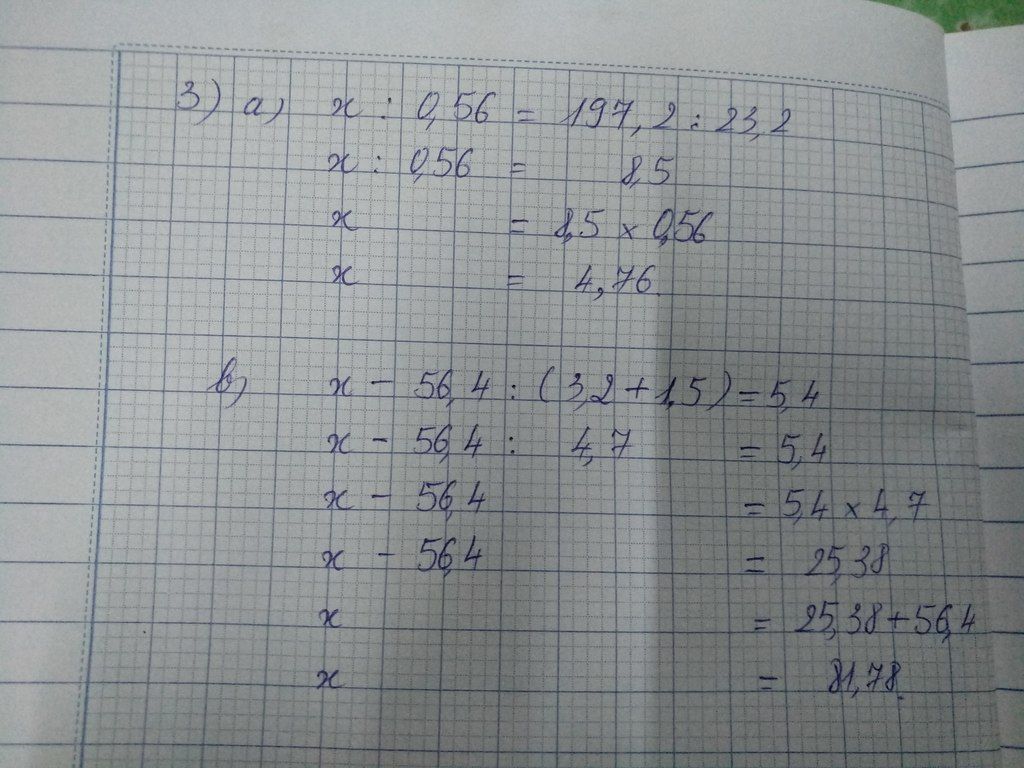 3) a) x : 0,56 = 197,2 : 23,2
x : 0,56 = 8,5
x = 8,5 × 0,56
x = 4,76
b) x - 56,4 : (3,2 + 1,5) = 5,4
x - 56,4 : 4,7 = 5,4
x - 56,4 = 5,4 × 4,7
x - 56,4 = 25,38
x = 25,38 + 56,4
x = 81,78